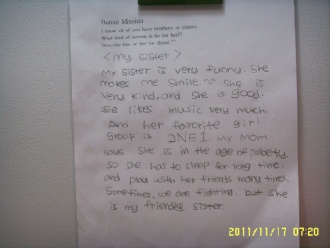 Human Mission
I know all of you have brothers or sisters.
What kind of person is he (or he)?
Describe him or her for three!^^
<My sister>
My sister is very funny. She
makes me smile. ^^ She is
very kind, and she is good.
She likes music very much
And her favorite girl
group is 2NE1 My Mom
says She is in the age of puberty
so she has to sleep for long time
and play with her friends many time.
Sometimes, we are fighting. but she
is my friendly sister.
2011/11/17 07:20